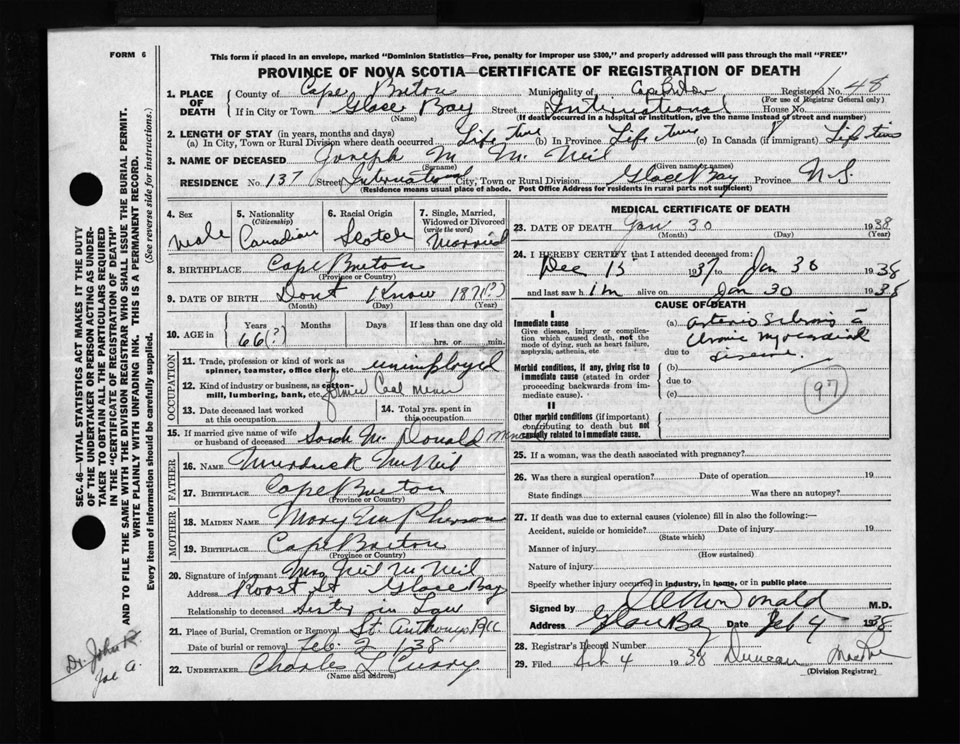 FORM 6
This form if placed in an envelope, marked "Dominion Statistics—Free, penalty for improper use $300," and properly addressed will pass through the mail "FREE"
PROVINCE OF NOVA SCOTIA—CERTIFICATE OF REGISTRATION OF DEATH
1. PLACE OF DEATH County of Cape Breton Municipality of Cape Breton Registered No. 48
(For use of Registrar General only)
If in City or Town Glace Bay Street International House No.
(Name) (If death occurred in a hospital or institution, give the name instead of street and number)
2. LENGTH OF STAY (in years, months and days)
(a) In City, Town or Rural Division where death occurred Life time (b) In Province Life time (c) In Canada (if immigrant) Life time
3. NAME OF DECEASED Joseph M Mc Neil
(Surname) (Given name or names)
RESIDENCE No. 137 Street International City, Town or Rural Division Glace Bay Province N.S.
(Residence means usual place of abode. Post Office Address for residents in rural parts not sufficient)
4. Sex male
5. Nationality (Citizenship) Canadian
6. Racial Origin Scotch
7. Single, Married, Widowed or Divorced (write the word) Married
8. BIRTHPLACE Cape Breton
(Province or Country)
9. DATE OF BIRTH Dont Know 1871(?)
(Month) (Day) (Year)
10. AGE in Years Months Days If less than one day old
66(?) hrs. or min.
OCCUPATION
11. Trade, profession or kind of work as spinner, teamster, office clerk, etc. unimployd
12. Kind of industry or business, as cotton-mill, lumbering, bank, etc. former Coal Miner
13. Date deceased last worked at this occupation
14. Total yrs. spent in this occupation
15. If married give name of wife or husband of deceased Sarah Mc Donald
FATHER
16. NAME Murdock McNeil
17. BIRTHPLACE Cape Breton
(Province or Country)
MOTHER
18. MAIDEN NAME Mary
19. BIRTHPLACE Cape Breton
(Province or Country)
20. Signature of informant Mrs Neil Mc Neil
Address Roost St Glace Bay
Relationship to deceased Sister in Law
21. Place of Burial, Cremation or Removal St. Anthonys
Date of burial or removal Feb 2/38
22. UNDERTAKER Charles L Curry
(Name and address)
MEDICAL CERTIFICATE OF DEATH
23. DATE OF DEATH Jan 30 1938
(Month) (Day) (Year)
24. I HEREBY CERTIFY that I attended deceased from:
Dec 15 1937 to Jan 30 1938
and last saw him alive on Jan 30 1938
CAUSE OF DEATH
I
Immediate cause
Give disease, injury or complication which caused death, not the mode of dying, such as heart failure, asphyxia, asthenia, etc
(a) myocardial
due to disease.
Morbid conditions, if any, giving rise to immediate cause (stated in order proceeding backwards from immediate cause).
(b)
due to
(c)
97
II
Other morbid conditions (if important) contributing to death but not causally related to immediate cause.
25. If a woman, was the death associated with pregnancy?
26. Was there a surgical operation? Date of operation 19
State findings Was there an autopsy?
27. If death was due to external causes (violence) fill in also the following:—
Accident, suicide or homicide? Date of injury 19
(State which)
Manner of injury
(How sustained)
Nature of injury
Specify whether injury occurred in industry, in home, or in public place
Signed by M.D.
Address Glace Bay Date Feb 4 1938
28. Registrar's Record Number
29. Filed Feb 4 1938 Duncan
(Division Registrar)
SEC. 46—VITAL STATISTICS ACT MAKES IT THE DUTY
OF THE UNDERTAKER OR PERSON ACTING AS UNDER-
TAKER TO OBTAIN ALL THE PARTICULARS REQUIRED
IN THE "CERTIFICATE OF REGISTRATION OF DEATH"
AND TO FILE THE SAME WITH THE DIVISION REGISTRAR WHO SHALL ISSUE THE BURIAL PERMIT.
WRITE PLAINLY WITH UNFADING INK. THIS IS A PERMANENT RECORD.
Every item of information should be carefully supplied. (See reverse side for instructions.)
Dr. John R.
Joe A.